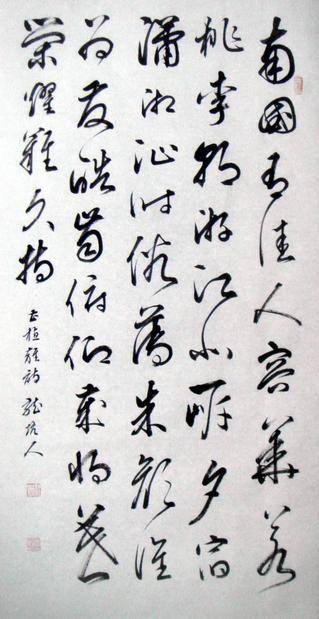 南國有佳人容華若
桃李朝游江北岸夕宿
瀟湘沚時俗薄朱顏誰
為發皓齒俯仰歲將暮
榮耀難久恃
曹植雜詩 人